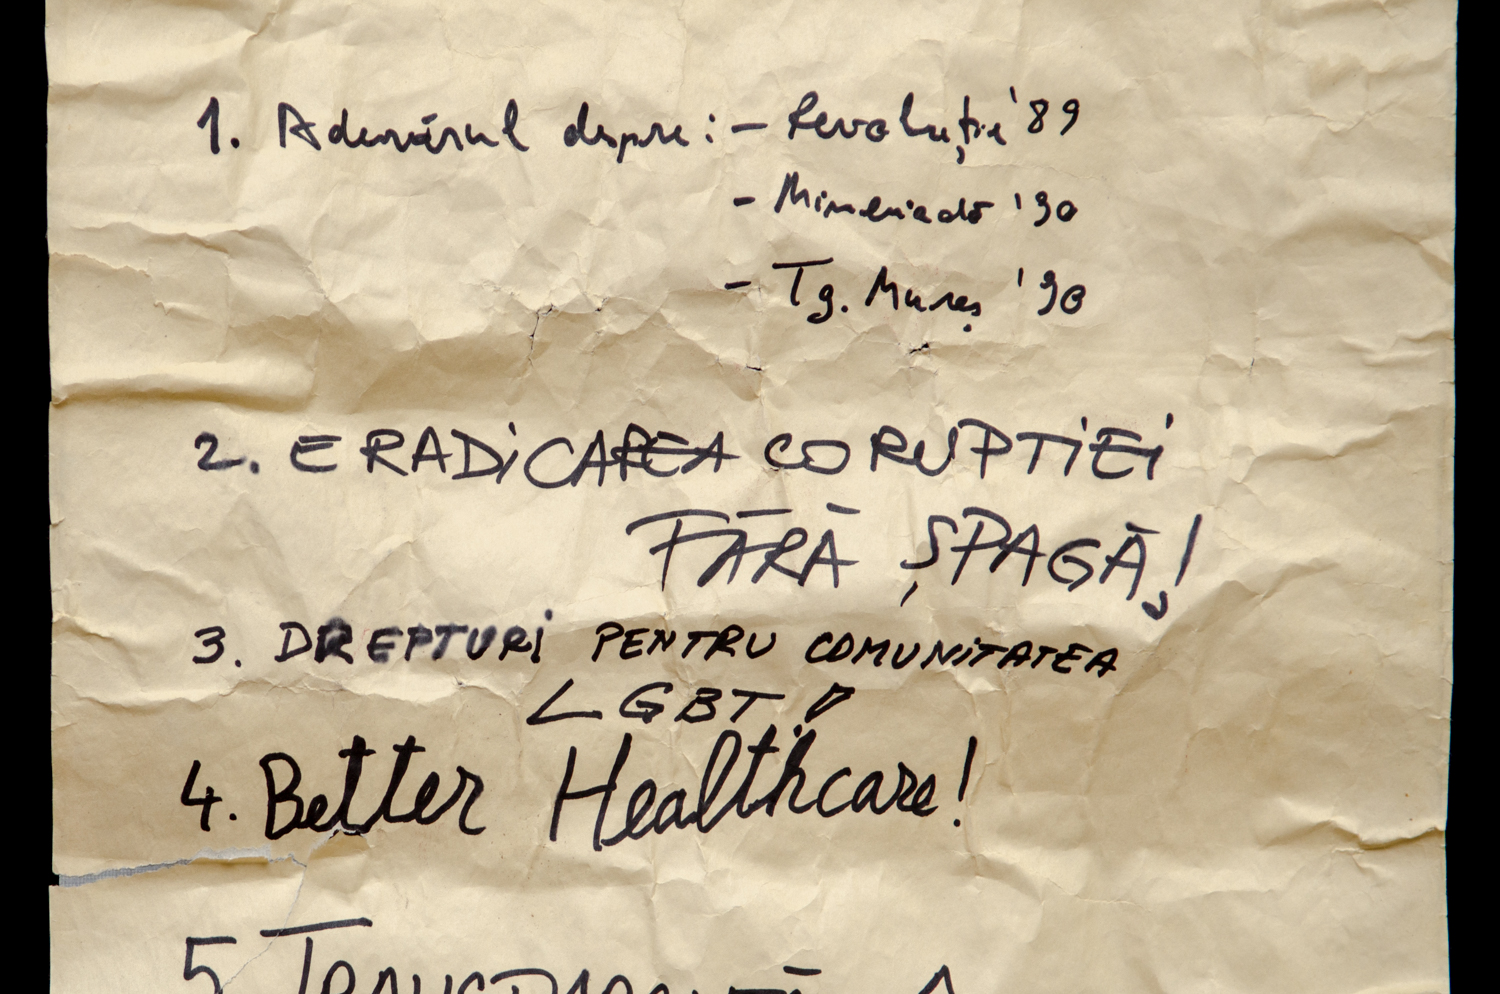 1. Adevărul despre: - Revoluție '89
- Mineriadă '90
- Tg. Mureș '90
2. ERADiCAREA CORUPTiEi
FĂRĂ ȘPAGĂ!
3. DREPTURi PENTRU COMUNiTATEA
LGBT!
4. Better Healthcare!
5